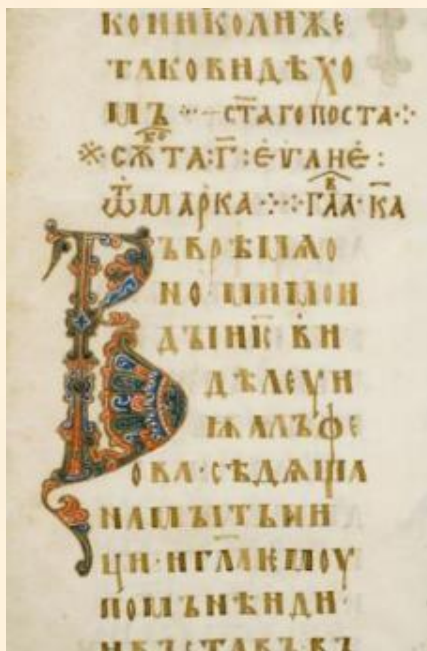 КОНИКОЛИЖЕ
ТАКОВИДѢХО
МЪ ·:·— СТ҃АГОПОСТА·:
※·СѪБО҃ТА·Г҃·ЕУ҃АНЕ҃:
Ѿ҃МАРКА·:·:ГЛ҃АВ·К҃А
ВЪВРѢМѦО
НО·МИМОИ
ДЫИІС҃ВИ
ДѢЛЕУИ
ѬАЛЪФЕ
ОВА·СѢДѦША
НАМЪІТЬНИ
ЦИ·ИГЛ҃АѤМОУ
ПОМЪНѢИДИ·
ИВЪСТАВЪ·В